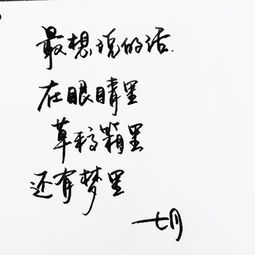 最想说的话
在眼睛里
草稿箱里
还有梦里
七月